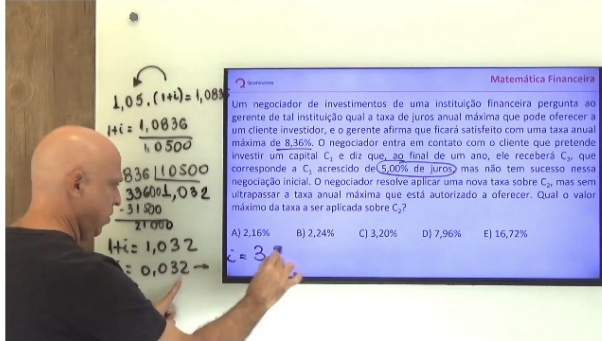 1,05.(1+i)=1,0836
1+i = 1,0836
1,0500
836 10500
33600 1,032
-31500
21000
1+i= 1,032
= 0,032 →
Matemática Financeira
Um negociador de investimentos de uma instituição financeira pergunta ao
gerente de tal instituição qual a taxa de juros anual máxima que pode oferecer a
um cliente investidor, e o gerente afirma que ficará satisfeito com uma taxa anual
máxima de 8,36%. O negociador entra em contato com o cliente que pretende
investir um capital C₁ e diz que, ao final de um ano, ele receberá C₂, que
corresponde a C₁ acrescido de 5,00% de juros, mas não tem sucesso nessa
negociação inicial. O negociador resolve aplicar uma nova taxa sobre C₂, mas sem
ultrapassar a taxa anual máxima que está autorizado a oferecer. Qual o valor
máximo da taxa a ser aplicada sobre C₂?
A) 2,16% B) 2,24% C) 3,20% D) 7,96% E) 16,72%
i = 3